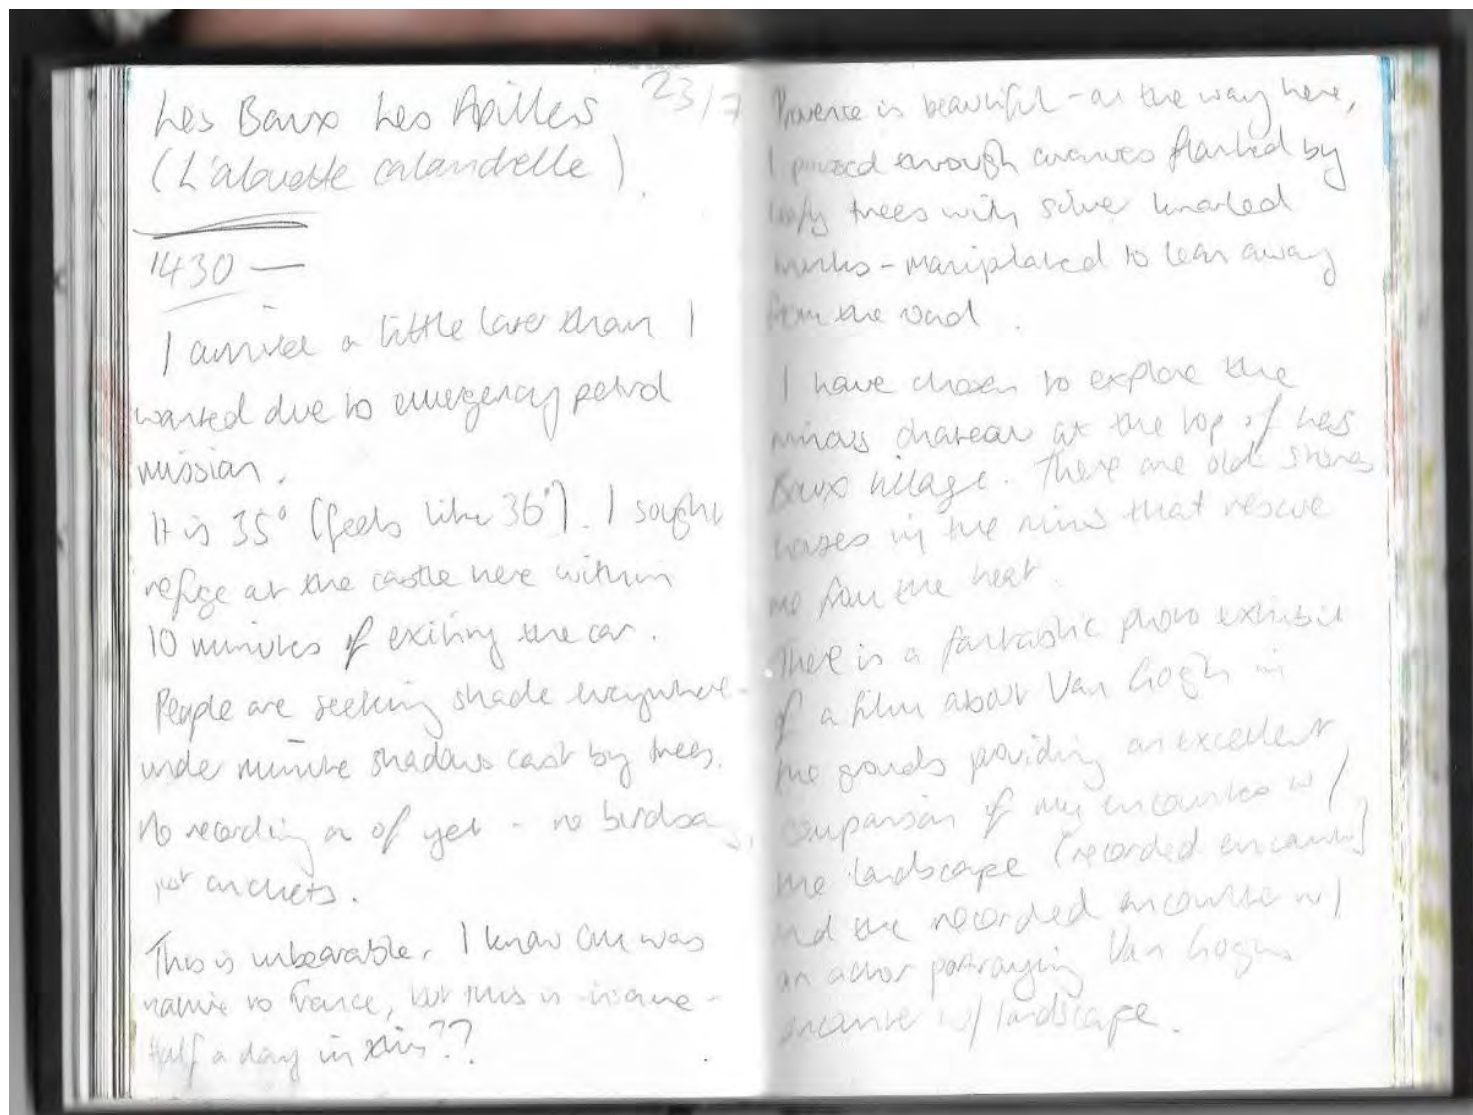 Les Baux Les Apilles 23/7
(L'alouette calandrelle).
1430 —
I arrived a little later than I
wanted due to emergency petrol
mission.
It is 35° (feels like 36°). I sought
refuge at the castle here within
10 minutes of exiting the car.
People are seeking shade everywhere -
under minute shadows cast by trees.
No recording as of yet - no birdsong,
just crickets.
This is unbearable. I know was
native to France, but this is insane -
Half a day in this??
Provence is beautiful - on the way here,
I passed through avenues flanked by
leafy trees with silver knarled
trunks - manipulated to lean away
from the road.
I have chosen to explore the
ruinous chateau at the top of Les
Baux village. There are old stones
houses in the ruins that rescue
me from the heat.
There is a fantastic photo exhibit
of a film about Van Gogh in
the grounds providing an excellent
comparison of my encounter w/
the landscape (recorded encounter)
and the recorded encounter w/
an actor portraying Van Goghs
encounter w/ landscape.